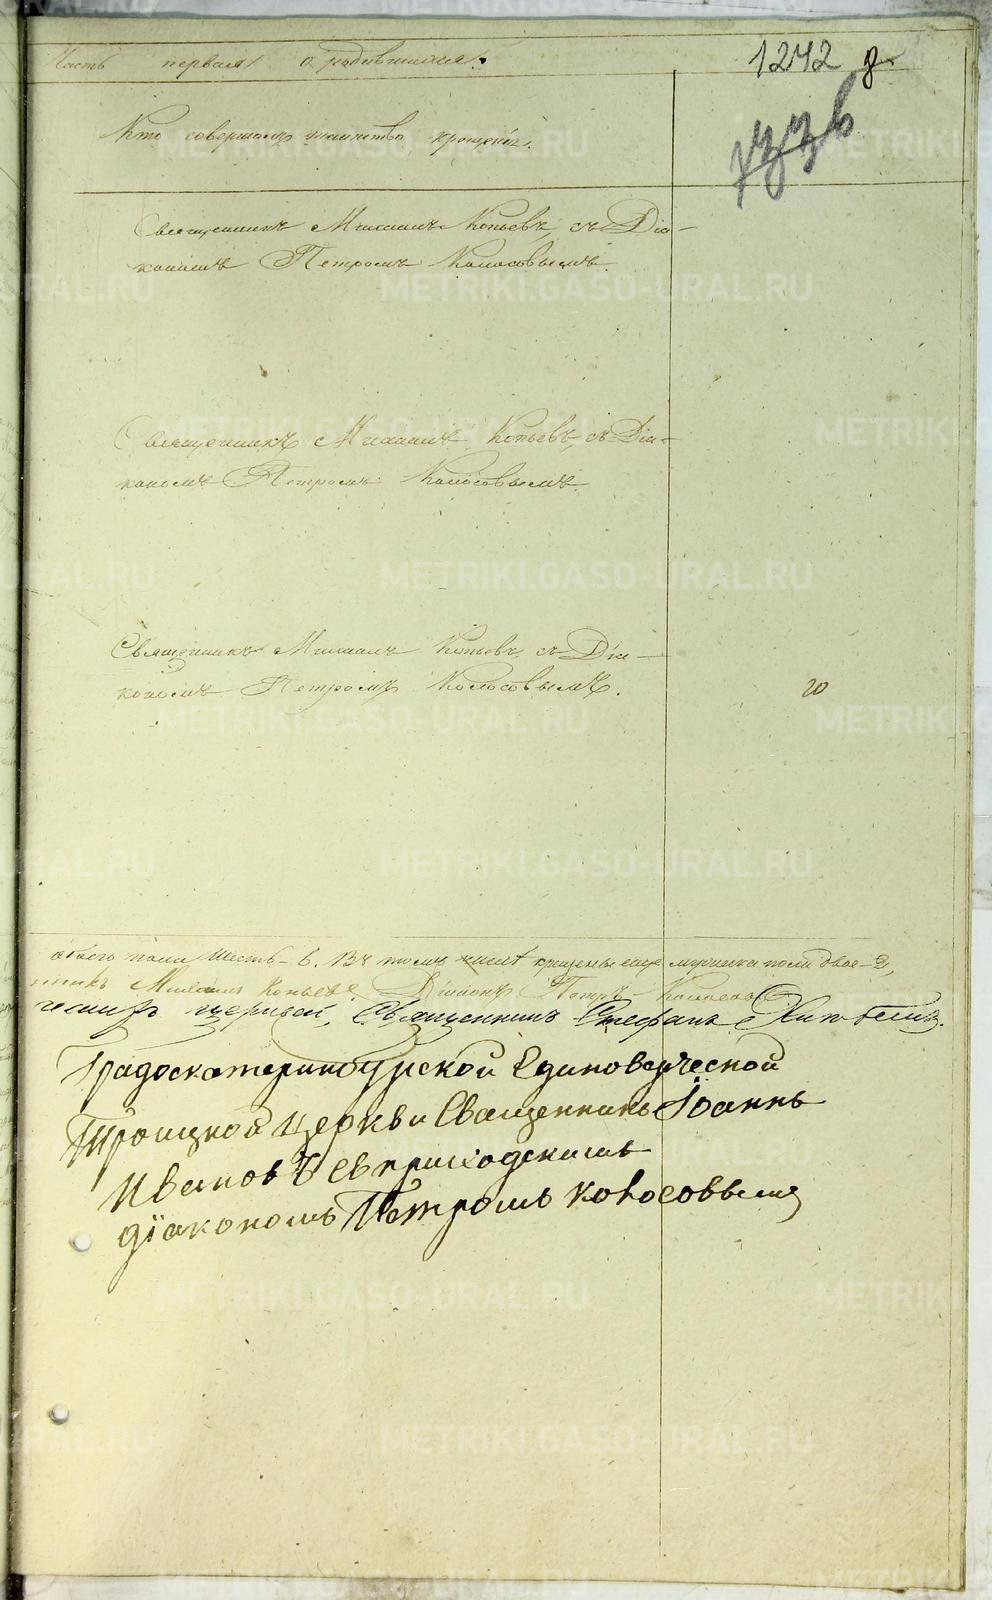 Часть первая о родившихся.
1242
Кто совершалъ таинство крещенія.
Священникъ Михаилъ Копьевъ, съ Діа-
кономъ Петромъ Колосовымъ.
Священникъ Михаилъ Копьевъ, съ Діа-
кономъ Петромъ Колосовымъ.
Священникъ Михаилъ Копьевъ съ Діа-
кономъ Петромъ Колосовымъ.
20
обоего пола шесть - 6. Въ томъ числѣ крещены еще мужеска пола двое - 2,
Михаилъ Копьевъ. Діаконъ Петръ Колосовъ
церквей, Священникъ Стефанъ
Градоекатеринбургской Единоверческой
Троицкой Церкви Священникъ Іоаннъ
Ивановъ съ приходскимъ
діакономъ Петромъ Колосовымъ
METRIKI.GASO-URAL.RU